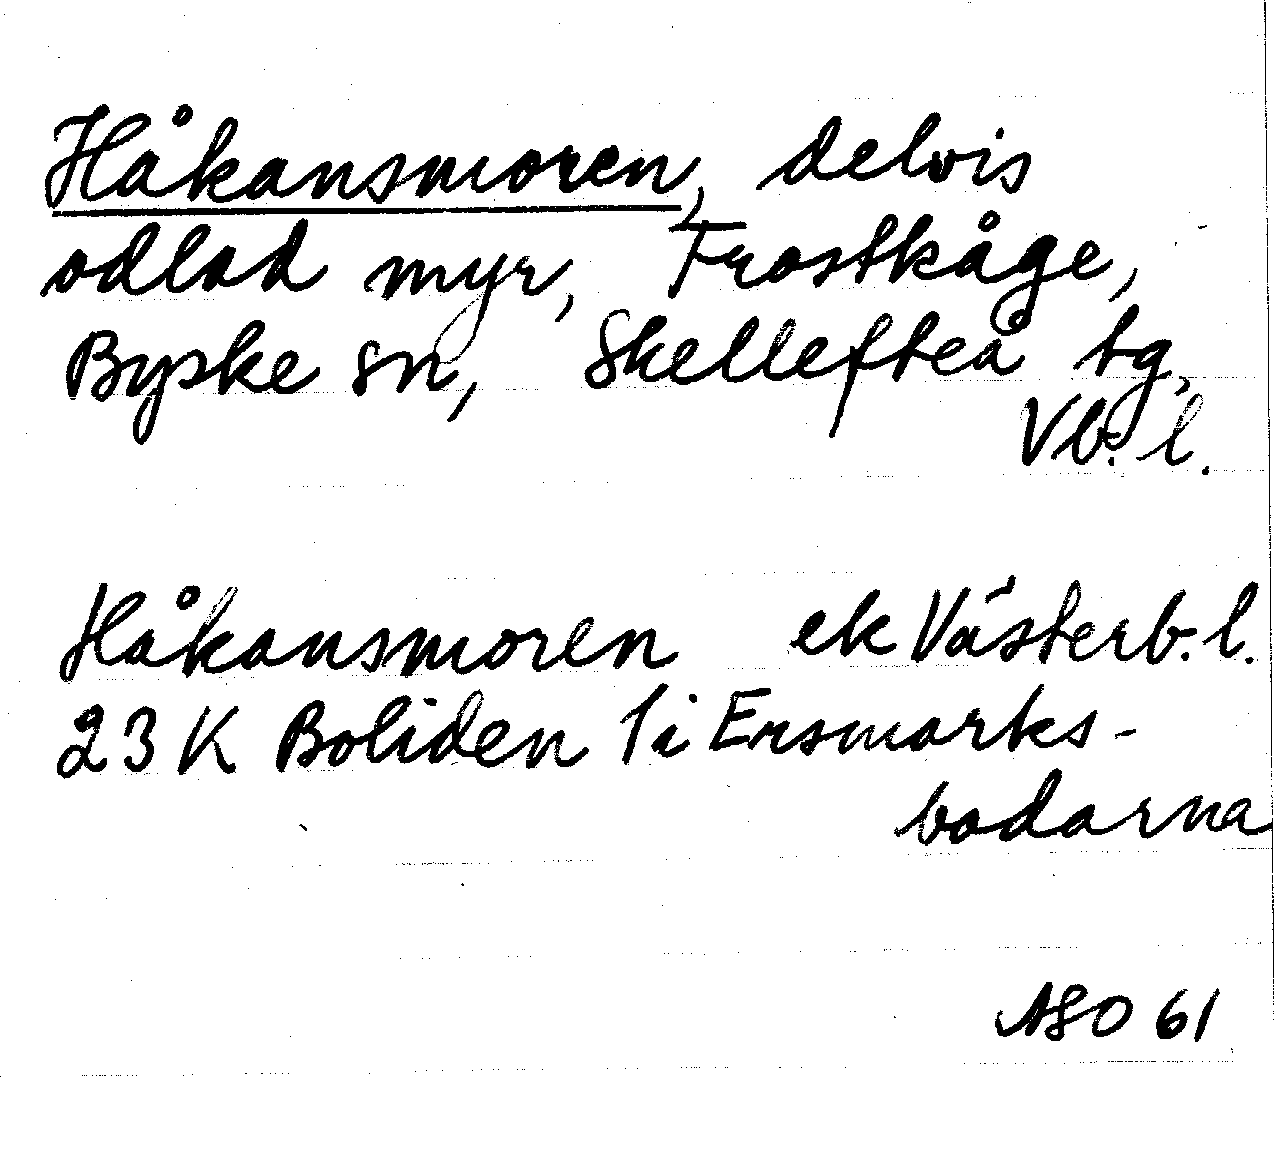 Håkansmoren, delvis
odlad myr, Frostkåge,
Byske sn, Skellefteå tg,
Vb. l.
Håkansmoren ek Västerb. l.
23 K Boliden 1i Ersmarks-
bodarna
ASO 61